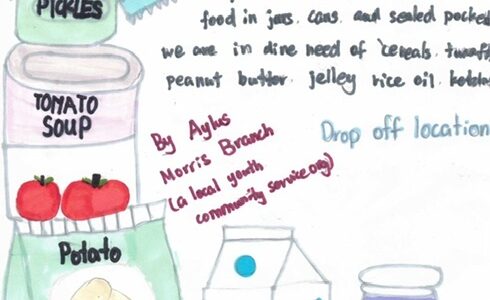 PICKLES
food in jars. cans. and sealed
we are in dire need of cereals.
peanut butter. jelley rice oil.
TOMATO
SOUP
By Aylus
Morris Branch
(a local youth
community service org)
Drop off location
Potato